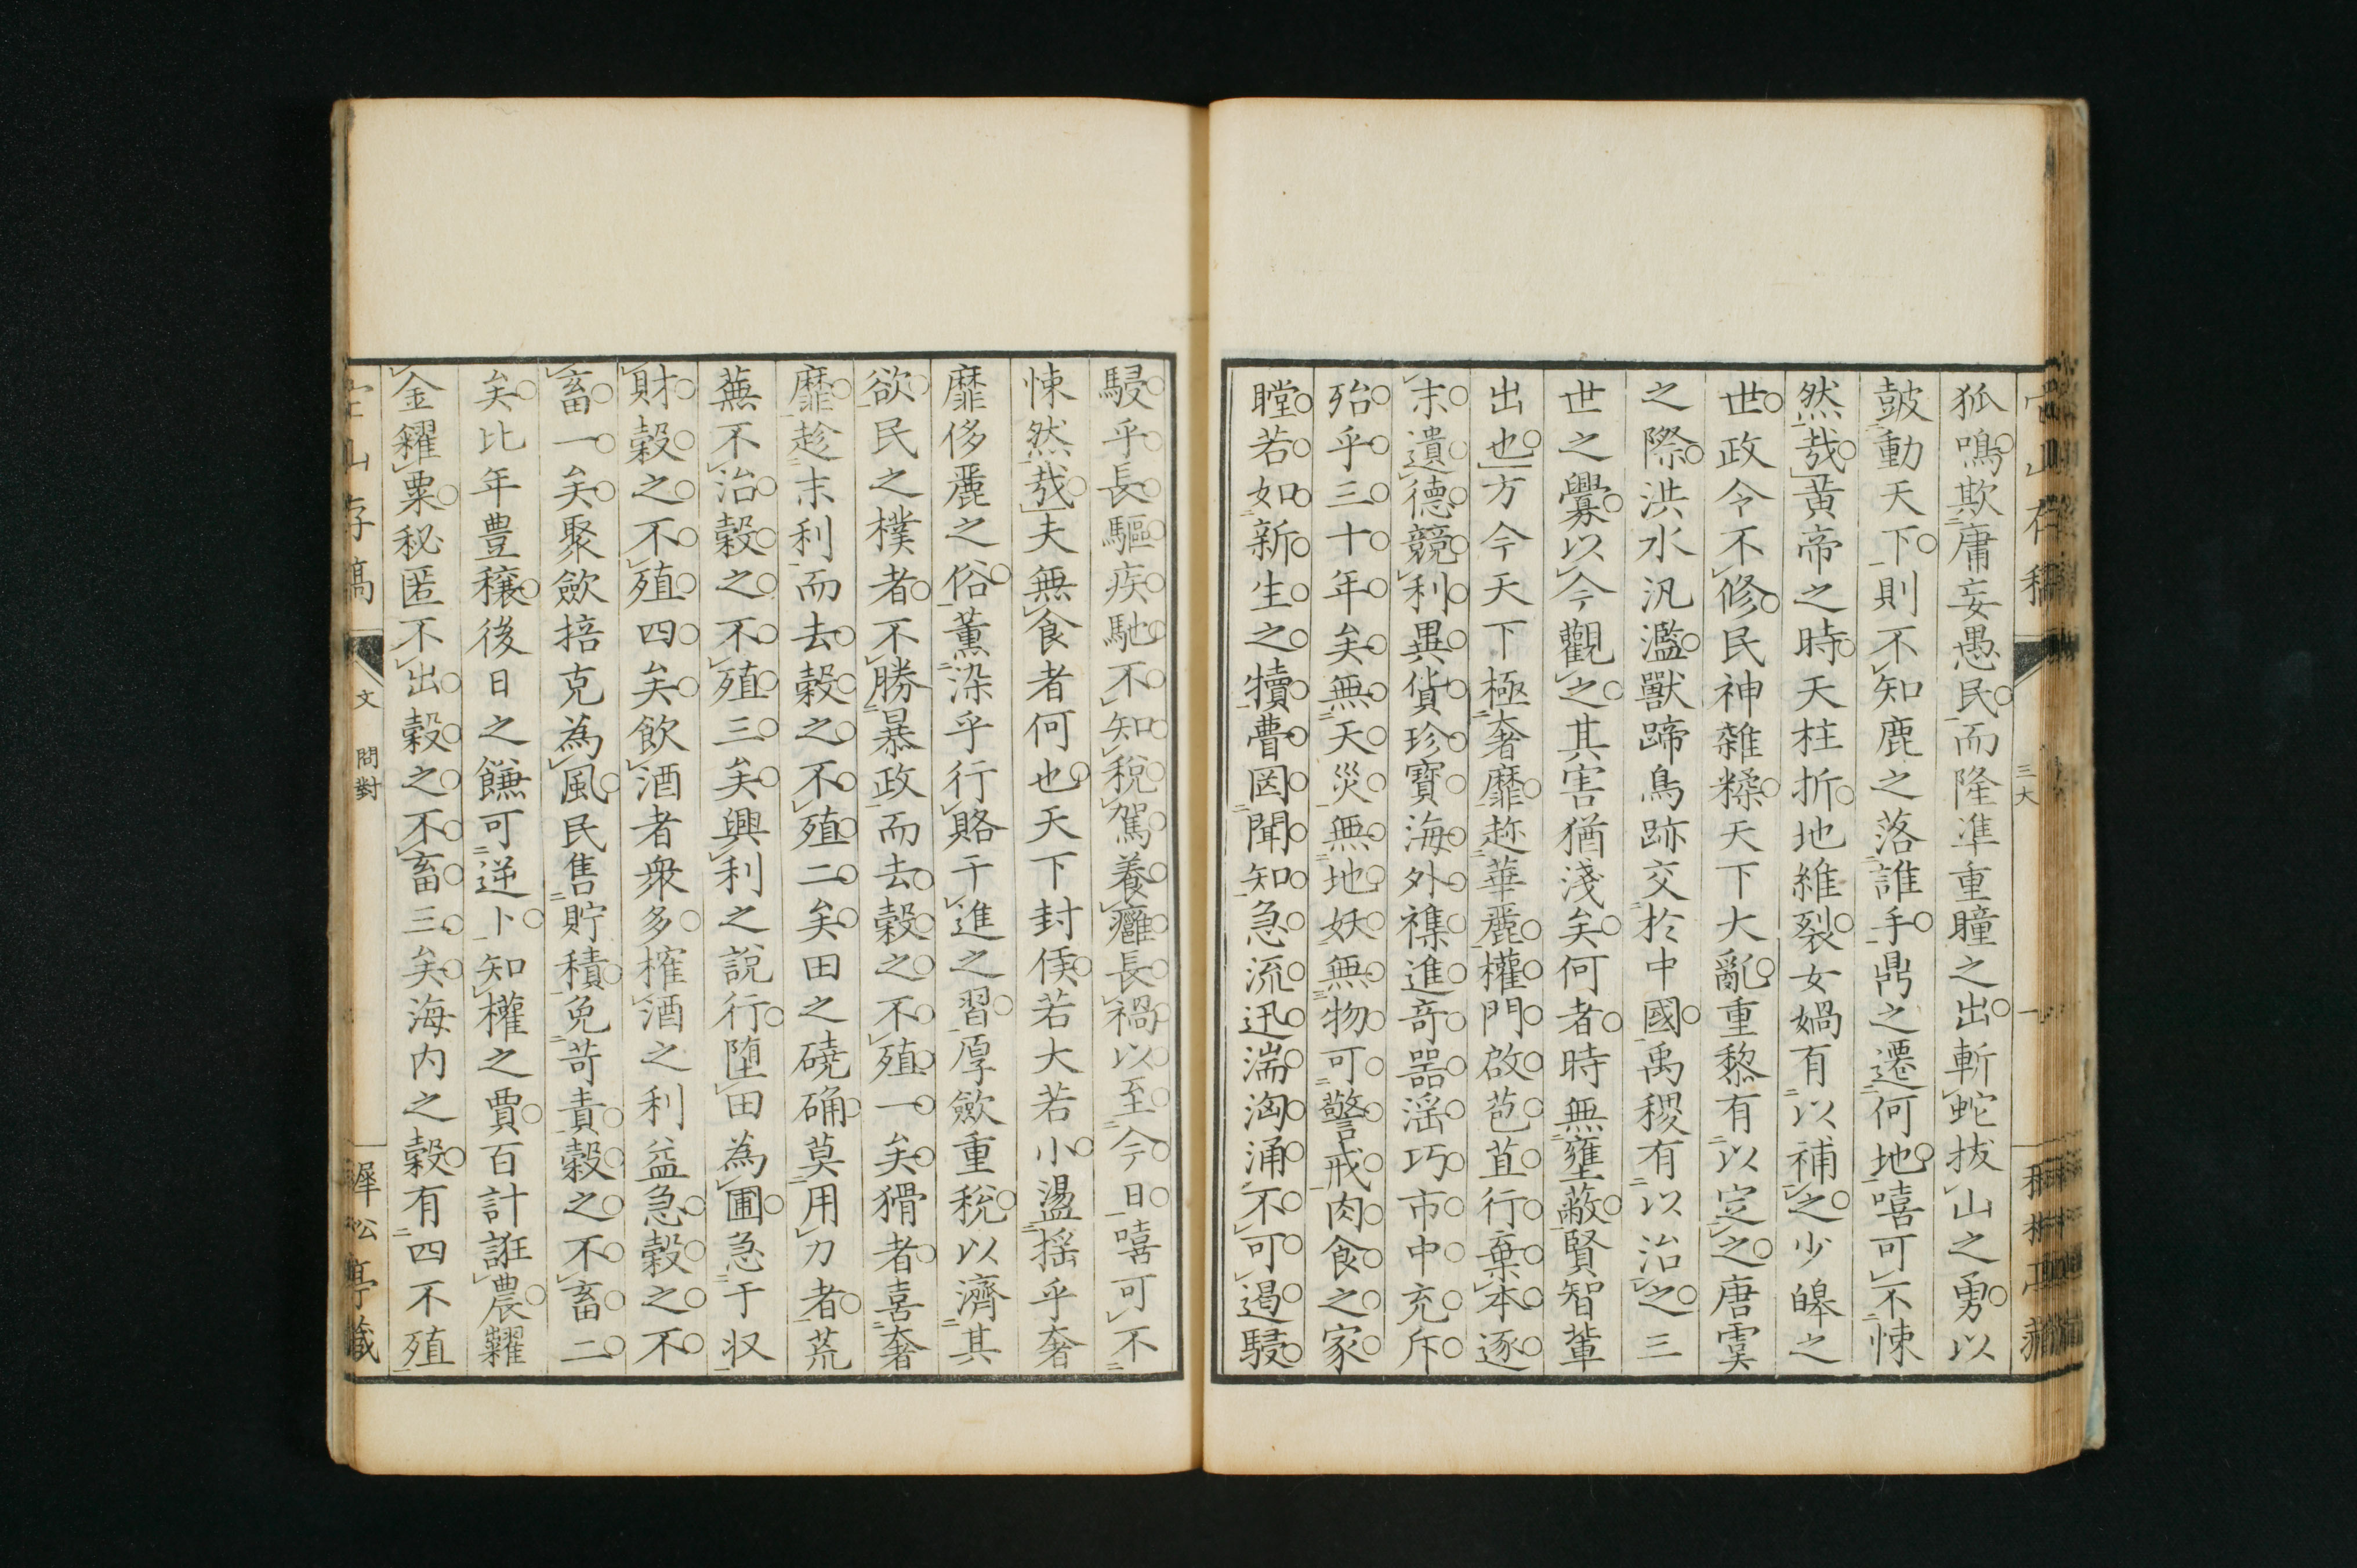 狐鳴欺庸妄愚民而隆準重瞳之出斬蛇拔山之勇以
皷動天下則不知鹿之落誰手鼎之遷何地嘻可不悚
然哉黃帝之時天柱折地維裂女媧有以補之少皞之
世政令不修民神雜糅天下大亂重黎有以定之唐虞
之際洪水汎濫獸蹄鳥跡交於中國禹稷有以治之三
世之釁以今觀之其害猶淺矣何者時無壅蔽賢智輩
出也方今天下極奢靡趂華麗權門啟苞苴行棄本逐
末遺德競利異貨珍寶海外襍進奇器滛巧市中充斥
殆乎三十年矣無天災無地妖無物可警戒肉食之家
瞠若如新生之犢瞢罔聞知急流迅湍洶涌不可遏駸
駸乎長驅疾馳不知稅駕養癰長禍以至今日嘻可不
悚然哉夫無食者何也天下封侯若大若小盪搖乎奢
靡侈麗之俗薰染乎行賂干進之習厚歛重稅以濟其
欲民之樸者不勝暴政而去穀之不殖一矣猾者喜奢
靡趁末利而去穀之不殖二矣田之磽确莫用力者荒
蕪不治穀之不殖三矣興利之說行墮田為圃急于収
財穀之不殖四矣飲酒者衆多榷酒之利益急穀之不
畜一矣聚歛掊克為風民售貯積免苛責穀之不畜二
矣比年豊穰後日之饑可逆卜知權之賈百計誑農糶
金糴粟秘匿不出穀之不畜三矣海內之穀有四不殖
三大
一
山存稿
文
問對
犀松亭藏